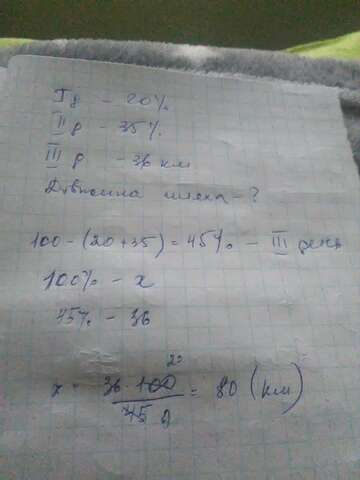 I д - 20%
II д - 35%
III д - 36 км
Довжина шляха - ?
100 - (20+35) = 45% - III день
100% - x
45% - 36
x = 36 · 100 20 / 45 9 = 80 (км)